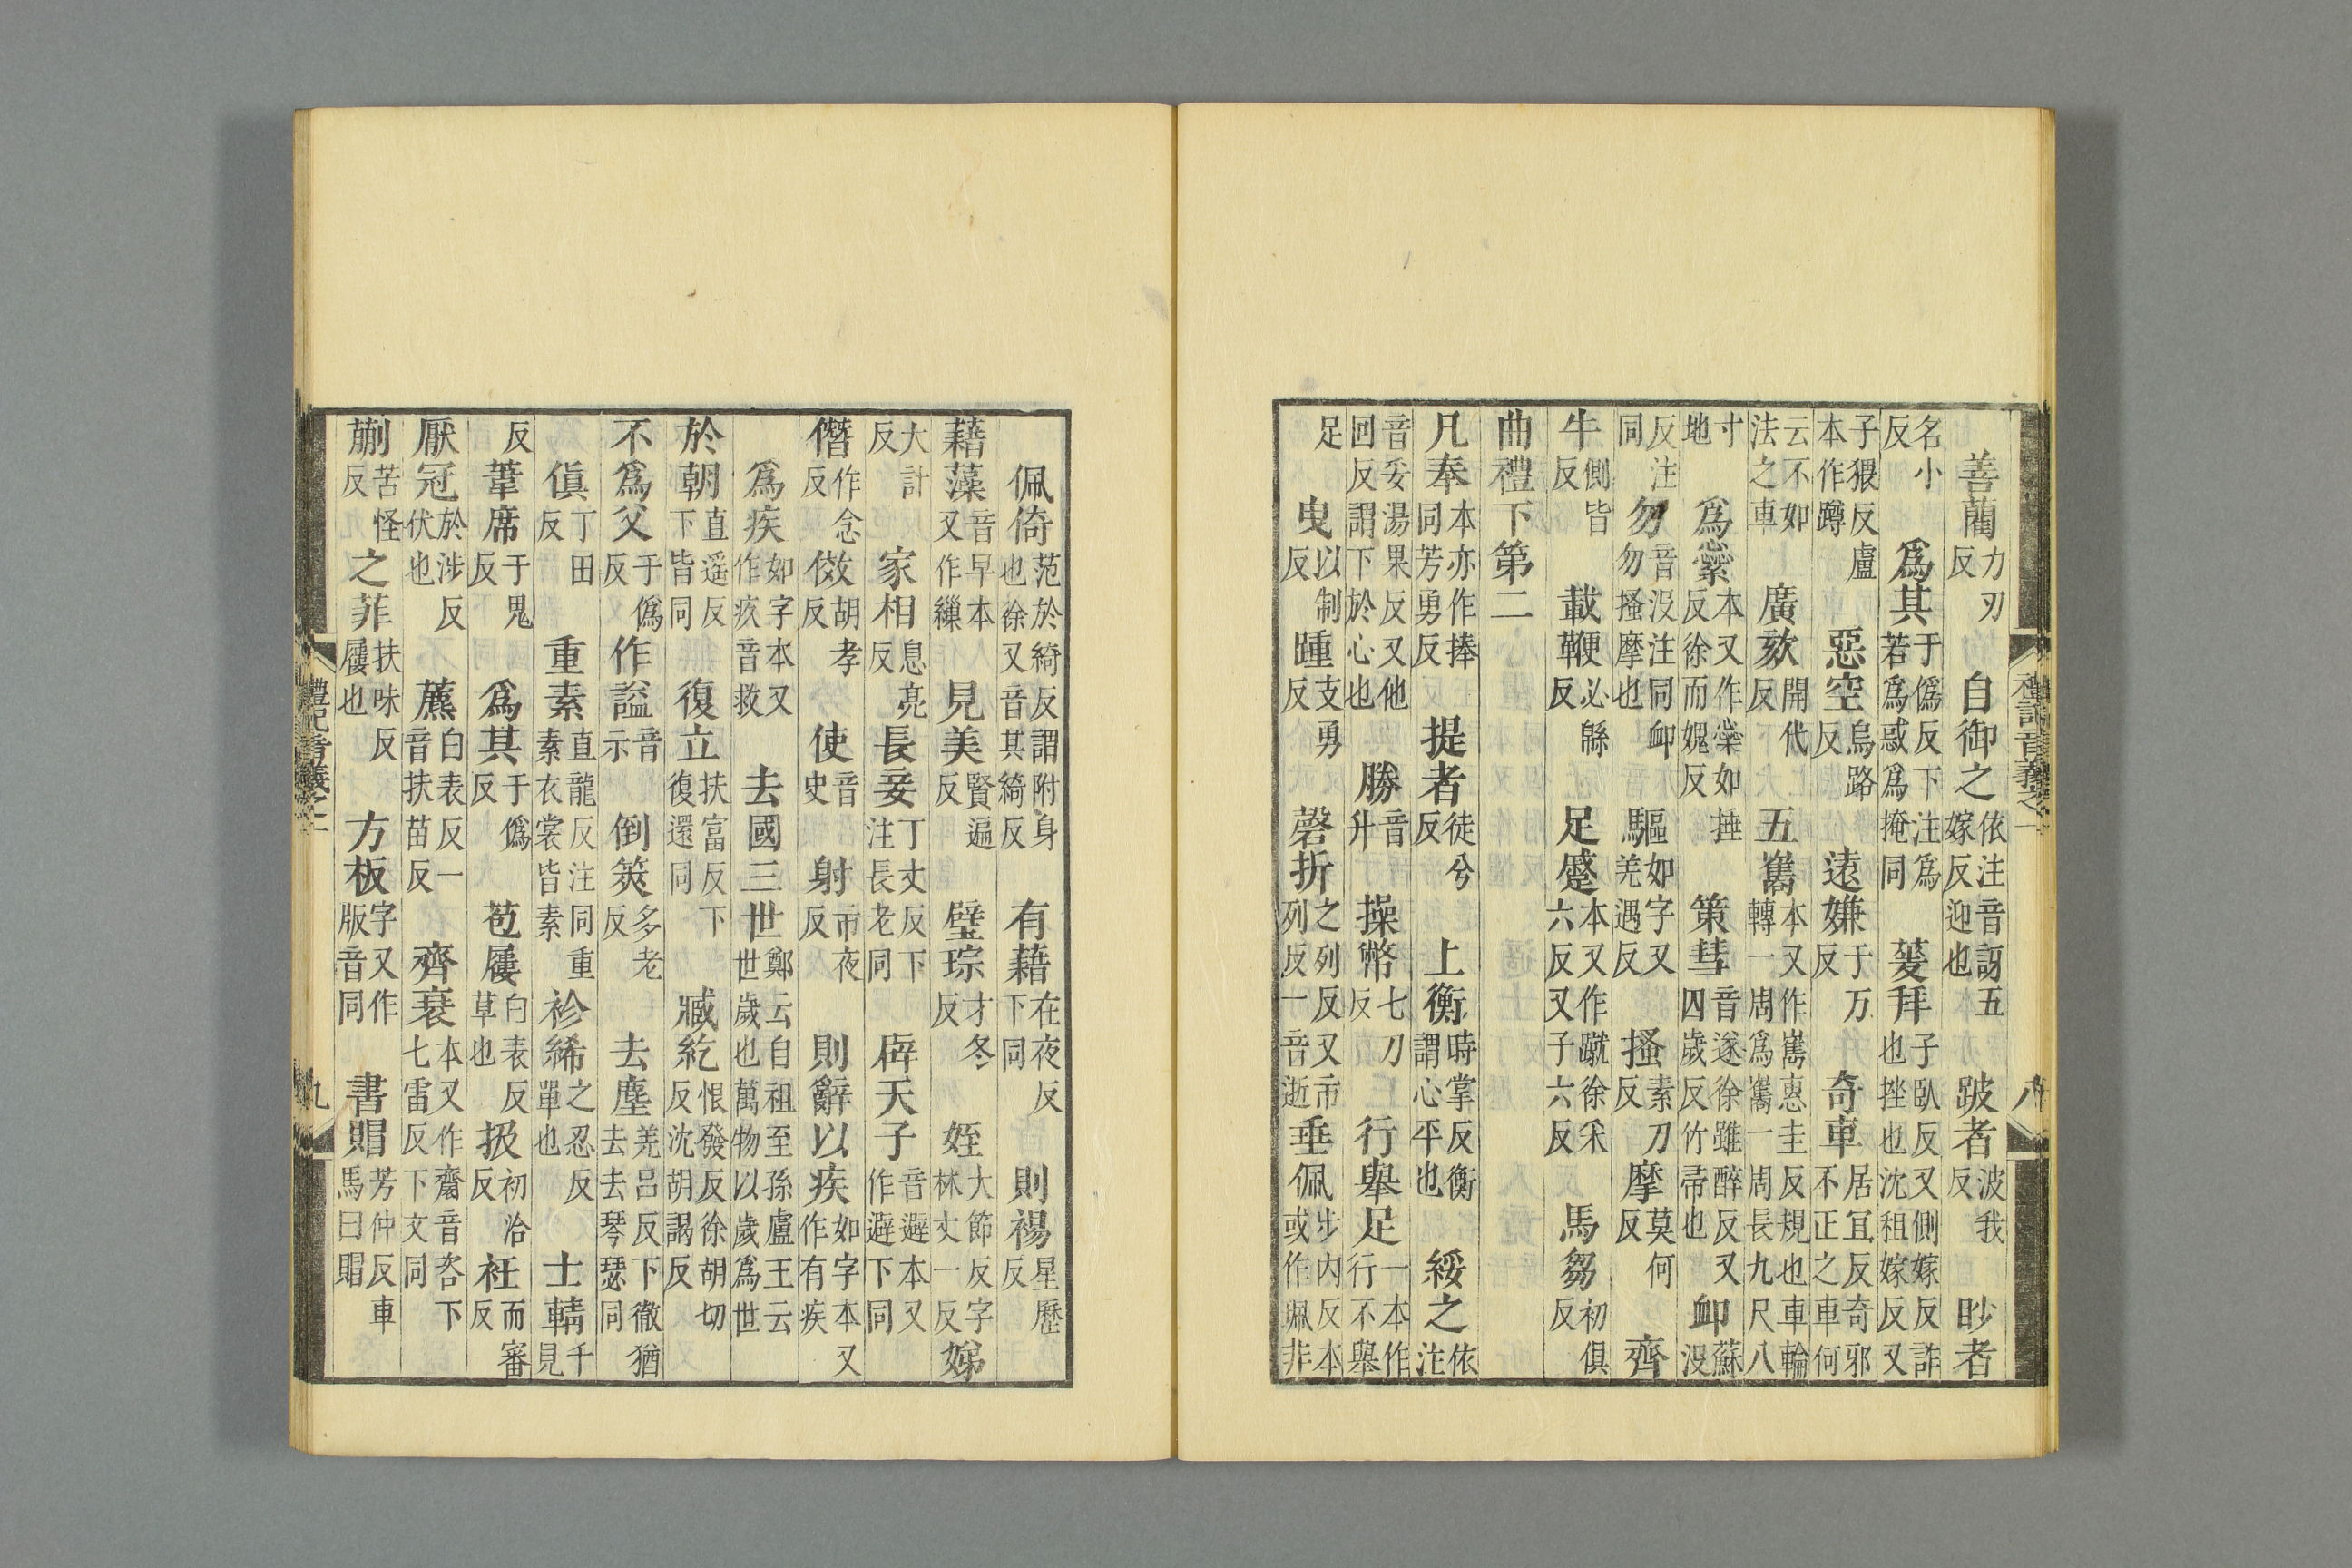 善藺力刃反 自御之依注音訝五嫁反迎也 跛者波我反 眇者
名小反 爲其于僞反下注爲若爲惑爲掩同 蓌拜子臥反又側嫁反詐也挫也沈租嫁反又
子猥反盧本作蹲 惡空烏路反 遠嫌于万反 奇車居宜反奇邪不正之車何
云不如法之車 廣欬開代反 五巂本又作嶲惠圭反規也車輪轉一周爲巂一周長九尺八
寸地 爲繠本又作蘂如捶反徐而媿反 策彗音遂徐雖醉反又囚歲反竹帚也 卹蘇没
反注同 勿音沒注同卹勿搔摩也 驅如字又羌遇反 搔素刀反 摩莫何反 齊
牛側皆反 載鞭必緜反 足蹙本又作蹴徐采六反又子六反 馬芻初俱反
曲禮下第二
凡奉本亦作捧同芳勇反 提者徒兮反 上衡時掌反衡謂心平也 綏之依注
音妥湯果反又他回反謂下於心也 勝音升 操幣七刀反 行舉足一本作行不舉
足 曳以制反 踵支勇反 磬折之列反又市列反一音逝 垂佩步内反本或作珮非
佩倚范於綺反謂附身也徐又音其綺反 有藉在夜反下同 則裼星歷反
藉藻音早本又作繅 見美賢遍反 璧琮才冬反 姪大節反字林丈一反 娣
大計反 家相息亮反 長妾丁丈反下注長老同 辟天子音避本又作避下同
僭作念反 傚胡孝反 使音史 射市夜反 則辭以疾如字本又作有疾
爲疾如字本又作疚音救 去國三世鄭云自祖至孫盧王云世世歲也萬物以歲爲世
於朝直遥反下皆同 復立扶富反下復還同 臧紇恨發反徐胡切反沈胡謁反
不爲父于僞反 作謚音示 倒筴多老反 去塵羌呂反下徹猶去去琴瑟同
傎丁田反 重素直龍反注同重素衣裳皆素 袗絺之忍反單也 士輤千見
反 葦席于鬼反 爲其于僞反 苞屨白表反草也 扱初洽反 衽而審反
厭冠於涉反伏也 藨白表反一音扶苗反 齊衰本又作齋音咨下七雷反下文同
蒯苦怪反 之菲扶味反屨也 方板字又作版音同 書賵芳仲反車馬曰賵
禮記音義之一 八
禮記音義之一 九